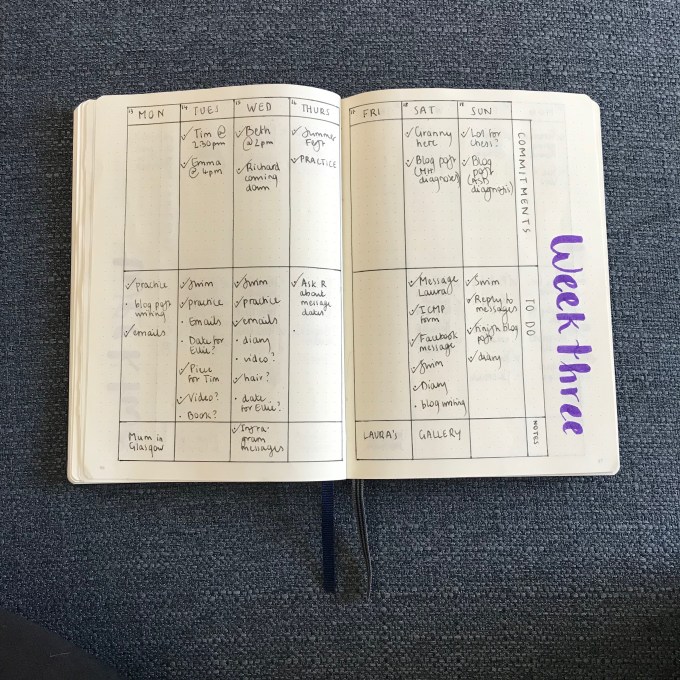 MON
TUES
WED
THURS
FRI
SAT
SUN
COMMITMENTS
Tim @
2:30pm
Emma
@ 4pm
Beth
@ 2pm
Richard
coming
down
Summer
Fest
PRACTICE
Granny
here
Blog post
(MH
diagnoses)
Lot for
Chess?
Blog
post
(ASD
diagnosis)
TO DO
practice
blog post
writing
emails
Swim
practice
Emails
Date for
Ellie?
Piece
for Tim
Video?
Book?
Swim
practice
emails
diary
video?
hair?
date
for Ellie?
Ask R
about
message
dates
Message
Laura
ICMP
form
Facebook
message
Swim
Diary
blog writing
Swim
Reply to
messages
finish blog
post
diary
NOTES
Mum in
Glasgow
Insta-
gram
messages
LAURA'S
GALLERY
Week three